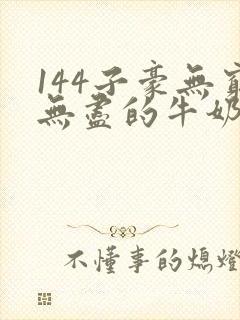 144子豪無窮
無盡的牛奶
不懂事的熄燈